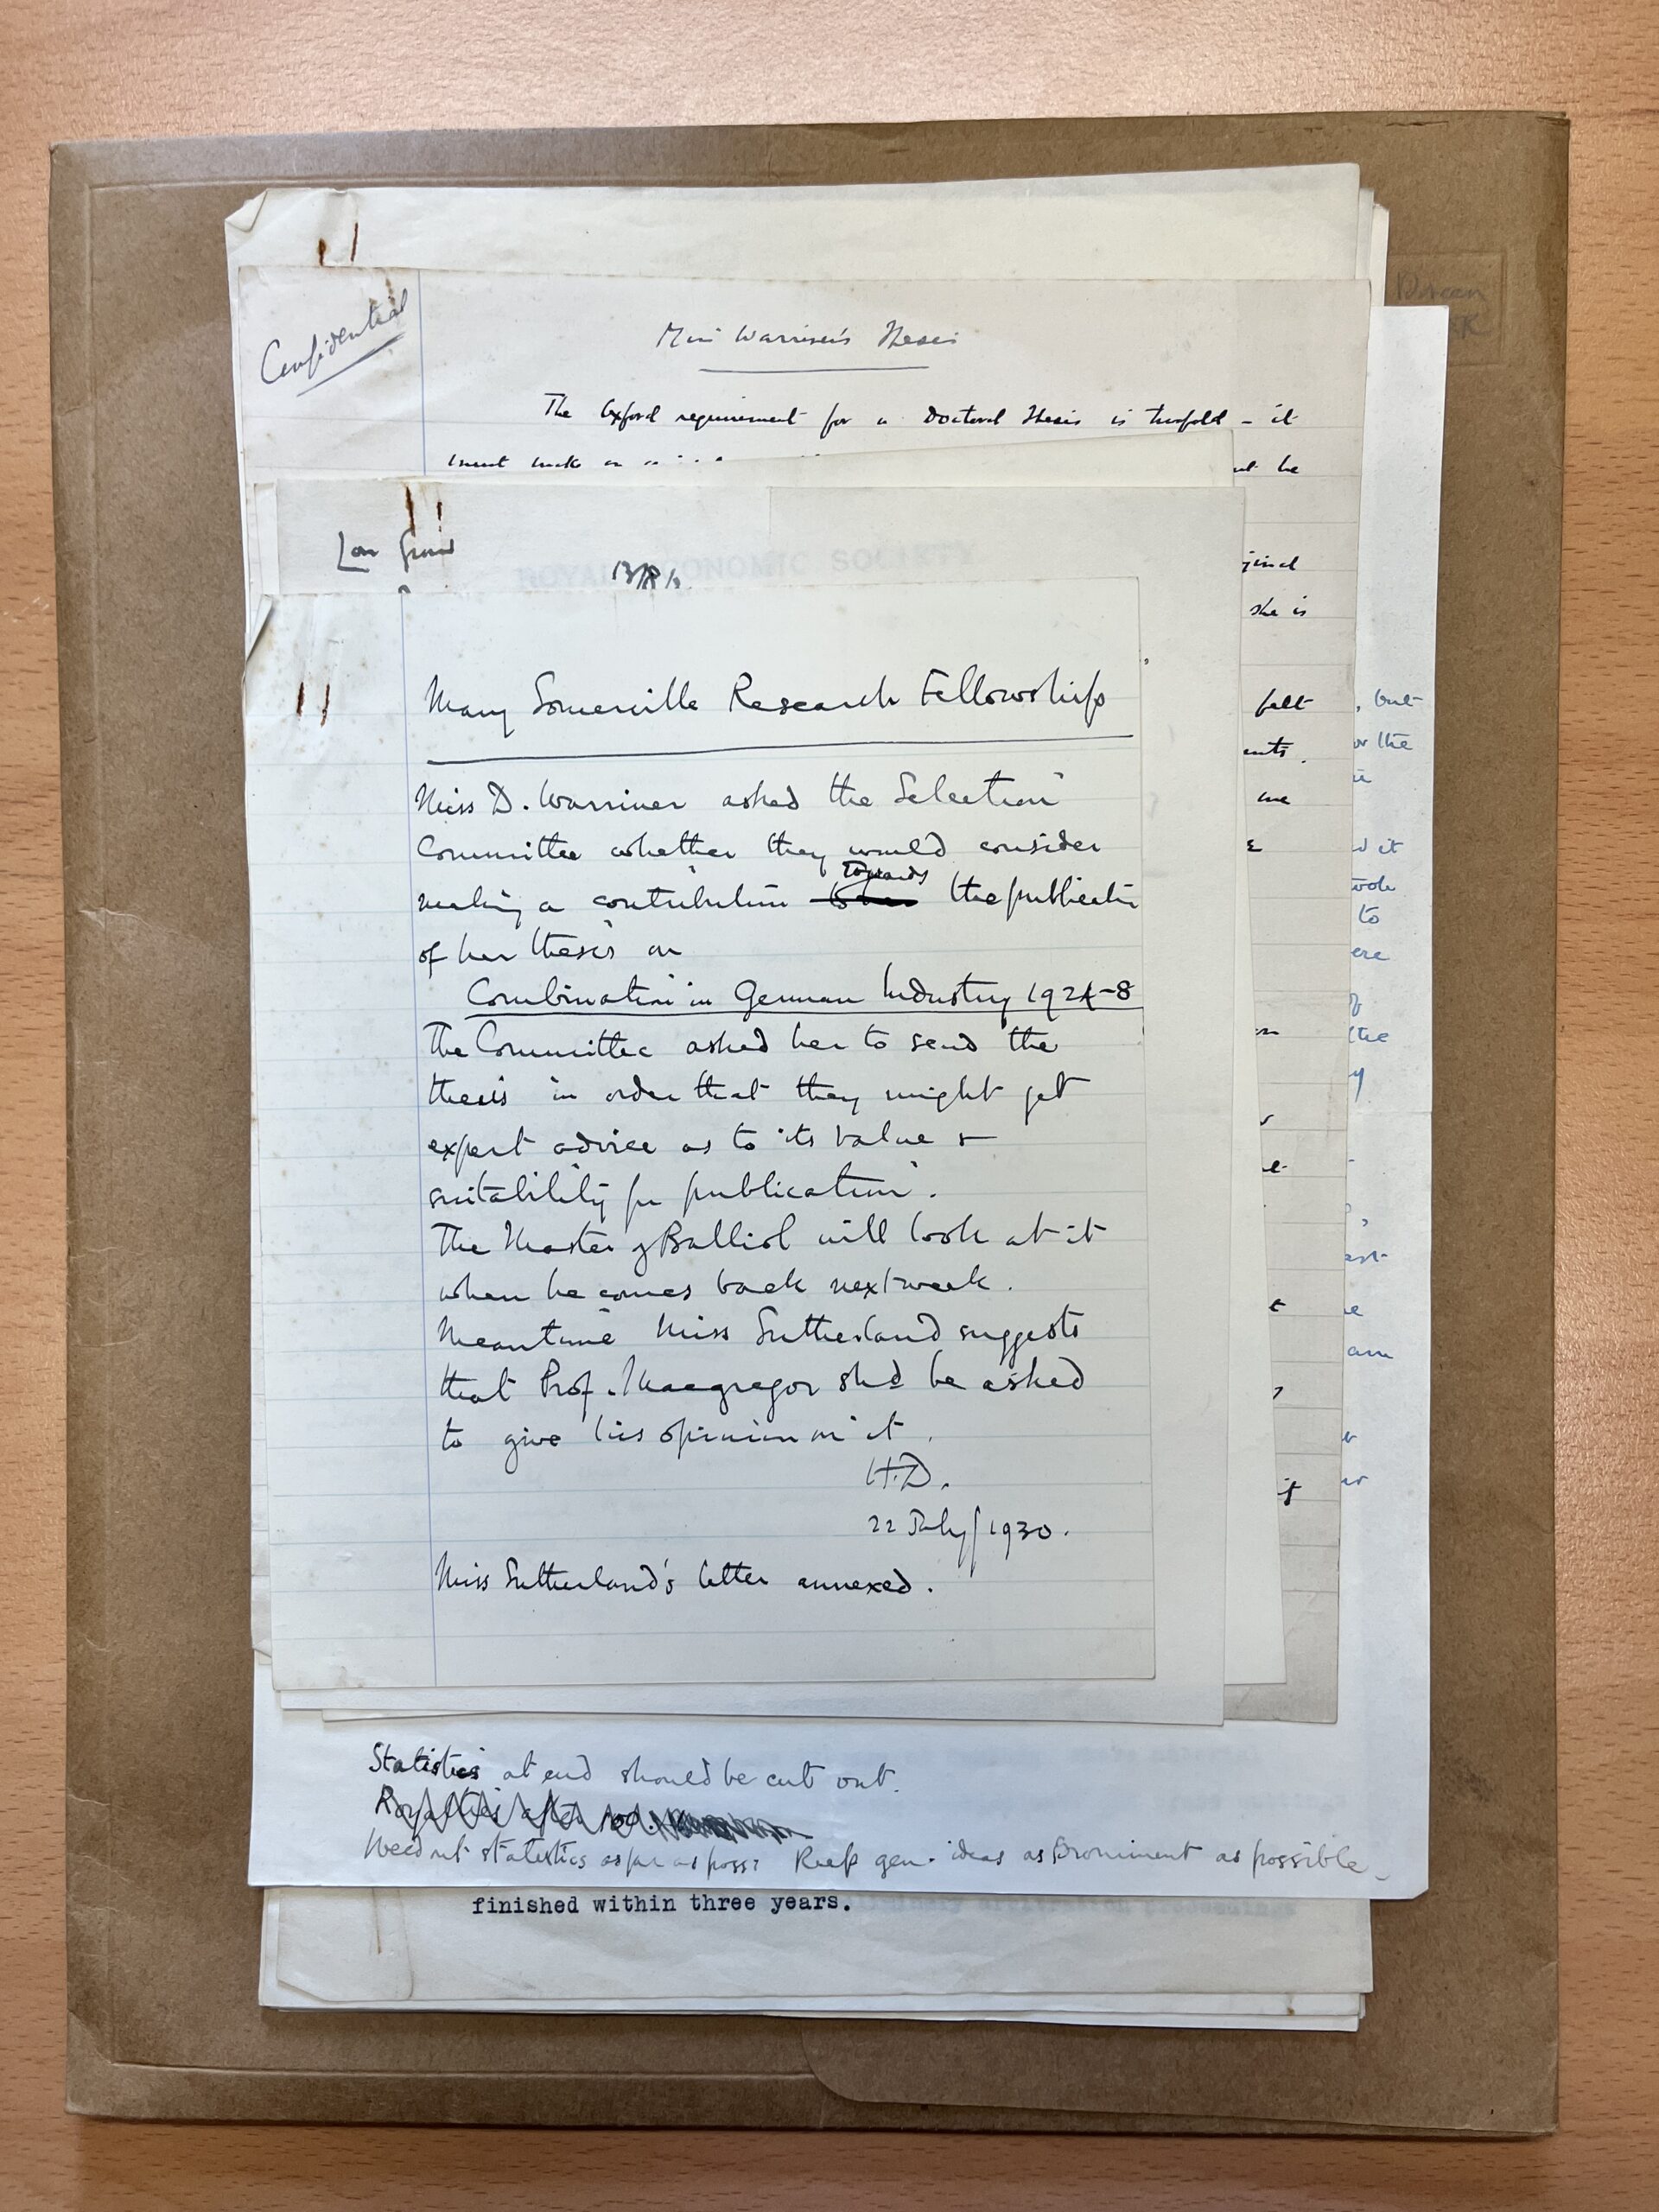 Confidential
Miss Warriner's Thesis
The Oxford requirement for a Doctoral Thesis is twofold – it
must make an
be
she is
felt
, but
or the
me
ROYAL ECONOMIC SOCIETY
Mary Somerville Research Fellowship
Miss D. Warriner asked the Selection
Committee whether they would consider
making a contribution towards the publication
of her thesis on
Combination in German Industry 1924–8
The Committee asked her to send the
thesis in order that they might get
expert advice as to its value &
suitability for publication.
The Master of Balliol will look at it
when he comes back next week.
Meantime Miss Sutherland suggests
that Prof. Macgregor shd be asked
to give his opinion on it.
H.D.
22 July/1930.
Miss Sutherland's letter annexed.
Statistics at end should be cut out.
Royalties after
statistics as far as poss: Keep gen. ideas as prominent as possible
finished within three years.